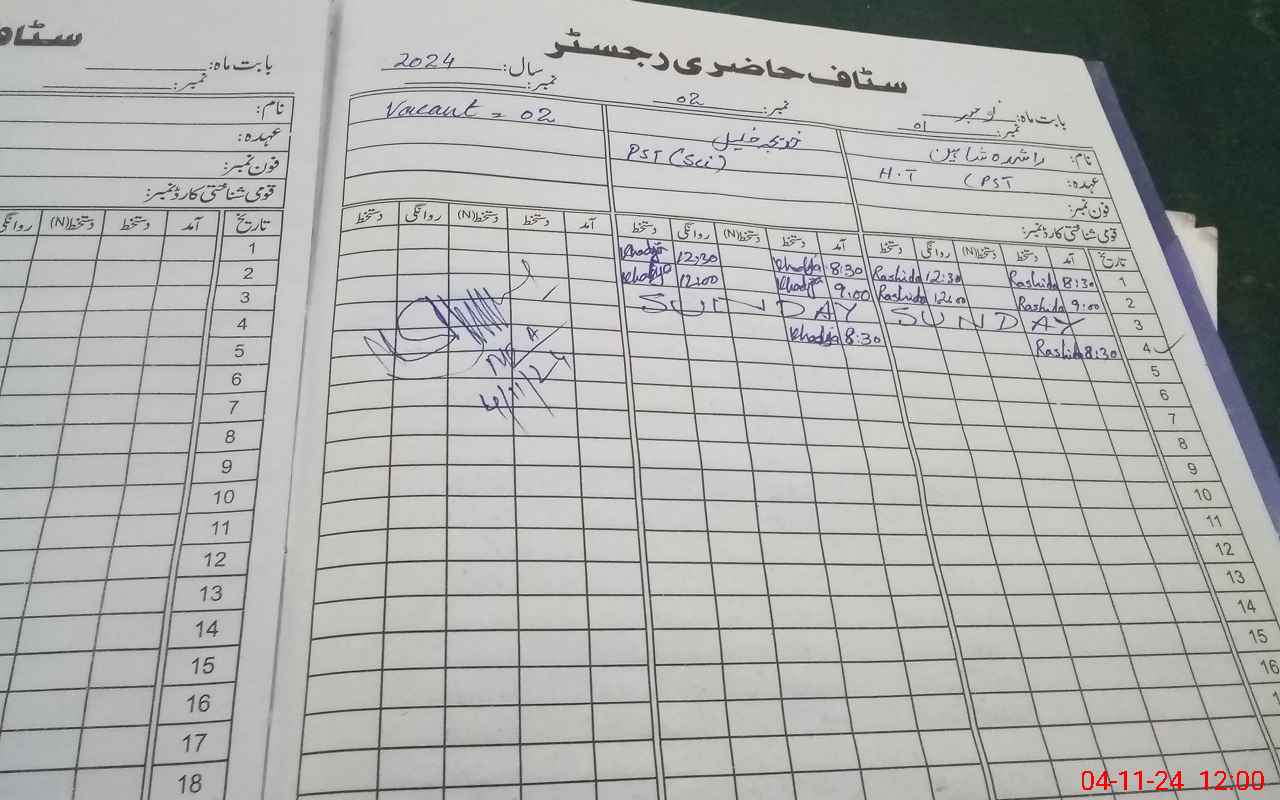 سٹاف حاضری رجسٹر
بابت ماہ: نومبر سال: 2024
نمبر: 01 نمبر: 02 نمبر:
نام: راشدہ شاہین
عہدہ: H.T (PST
فون نمبر:
قومی شناختی کارڈ نمبر:
خدیجہ خلیل
PST (Sci)
Vacant = 02
تاریخ آمد دستخط دستخط(N) روانگی دستخط آمد دستخط دستخط(N) روانگی دستخط آمد دستخط دستخط(N) روانگی دستخط
1 8:30 Rashida 12:30 Rashida 8:30 Khadija 12:30 Khadija
2 9:00 Rashida 12:00 Rashida 9:00 Khadija 12:00 Khadija
3 SUNDAY SUNDAY
4 8:30 Rashida 8:30 Khadija
5
6
7
8
9
10
11
12
13
14
15
16
بابت ماہ:
نمبر:
نام:
عہدہ:
فون نمبر:
قومی شناختی کارڈ نمبر:
تاریخ آمد دستخط دستخط(N) روانگی
1
2
3
4
5
6
7
8
9
10
11
12
13
14
15
16
17
18
04-11-24 12:00